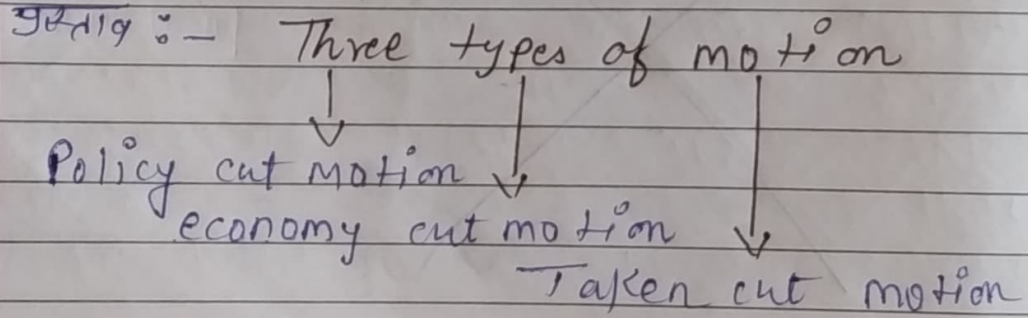 प्रस्ताव :- Three types of motion
Policy cut motion
economy cut motion
Taken cut motion